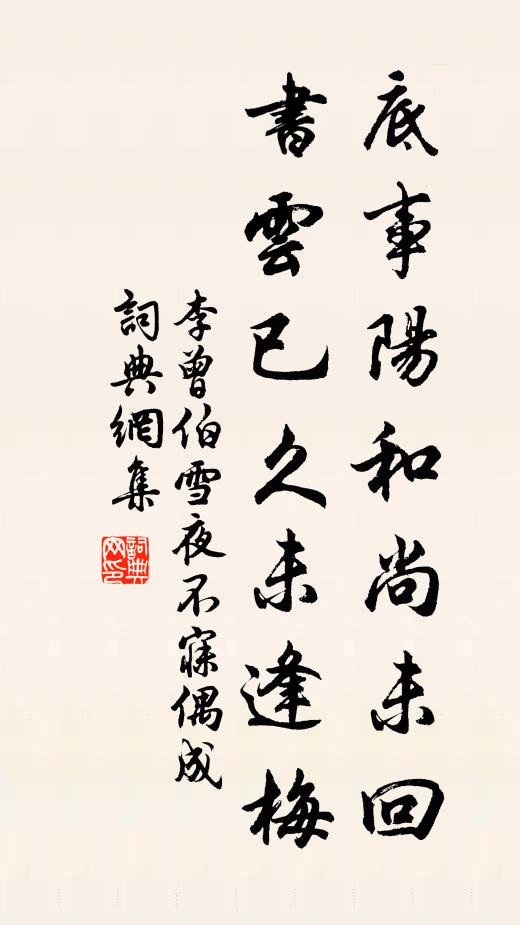 底事陽和尚未回
書雲已久未逢梅
李曾伯雪夜不寐偶成
詞典網集
詞典网印